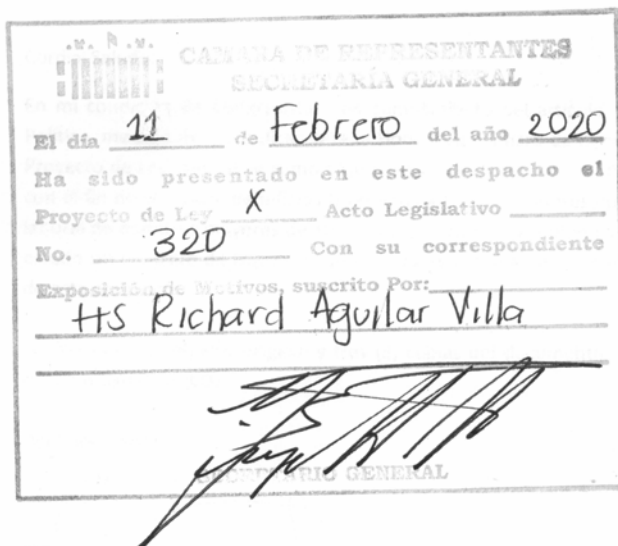 CAMARA DE REPRESENTANTES
SECRETARÍA GENERAL
El día 11 de Febrero del año 2020
Ha sido presentado en este despacho el
Proyecto de Ley X Acto Legislativo
No. 320 Con su correspondiente
Exposición de Motivos, suscrito Por:
HS Richard Aguilar Villa
SECRETARIO GENERAL